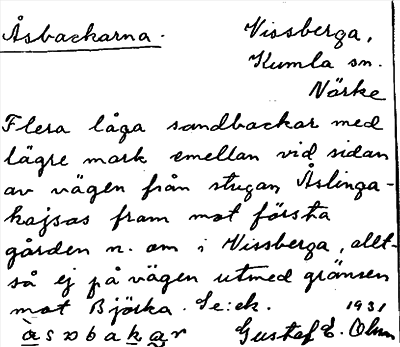 Åsbackarna.
Vissberga,
Kumla sn.
Närke
Flera låga sandbackar med
lägre mark emellan vid sidan
av vägen från stugan Åslinga-
kajsas fram mot första
gården n. om i Vissberga, allt-
så ej på vägen utmed gränsen
mot Björka. Se: ek.
1931
Gustaf E.